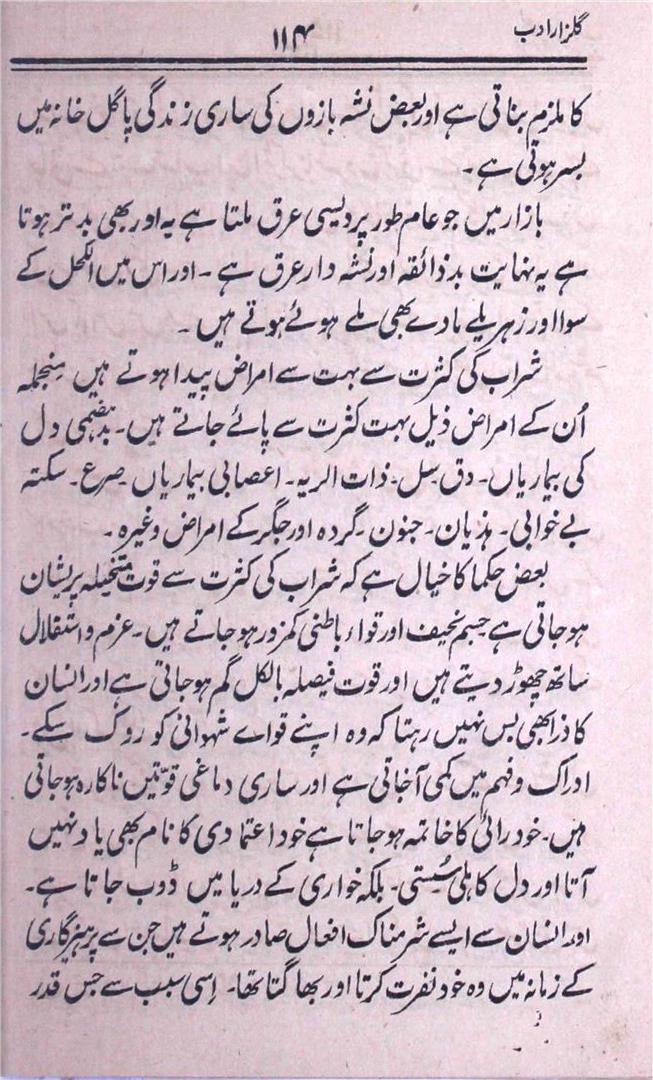 گلزار ادب
۱۱۴
کا ملزم بناتی ہے اور بعض نشہ بازوں کی ساری زندگی پاگل خانہ میں
بسر ہوتی ہے۔
بازار میں جو عام طور پر دیسی عرق ملتا ہے یہ اور بھی بدتر ہوتا
ہے یہ نہایت بدذائقہ اور نشہ دار عرق ہے۔ اور اس میں الکحل کے
سوا اور زہریلے مادے بھی ملے ہوئے ہوتے ہیں۔
شراب کی کثرت سے بہت سے امراض پیدا ہوتے ہیں منجملہ
اُن کے امراض ذیل بہت کثرت سے پائے جاتے ہیں۔ بدہضمی دل
کی بیماریاں۔ دق سِل۔ ذات الریہ۔ اعصابی بیماریاں صرع۔ سکتہ
بے خوابی۔ ہذیان۔ جنون۔ گردہ اور جگر کے امراض وغیرہ۔
بعض حکما کا خیال ہے کہ شراب کی کثرت سے قوت متخیلہ پریشان
ہو جاتی ہے جسم نحیف اور قواء باطنی کمزور ہو جاتے ہیں۔ عزم و استقلال
ساتھ چھوڑ دیتے ہیں اور قوت فیصلہ بالکل گم ہو جاتی ہے اور انسان
کا ذرا بھی بس نہیں رہتا کہ وہ اپنے قواے شہوانی کو روک سکے۔
ادراک و فہم میں کمی آ جاتی ہے اور ساری دماغی قوّتیں ناکارہ ہو جاتی
ہیں۔ خودرائی کا خاتمہ ہو جاتا ہے خود اعتمادی کا نام بھی یاد نہیں
آتا اور دل کاہلی سُستی۔ بلکہ خواری کے دریا میں ڈوب جاتا ہے۔
اور انسان سے ایسے شرمناک افعال صادر ہوتے ہیں جن سے پرہیزگاری
کے زمانہ میں وہ خود نفرت کرتا اور بھاگتا تھا۔ اِسی سبب سے جس قدر